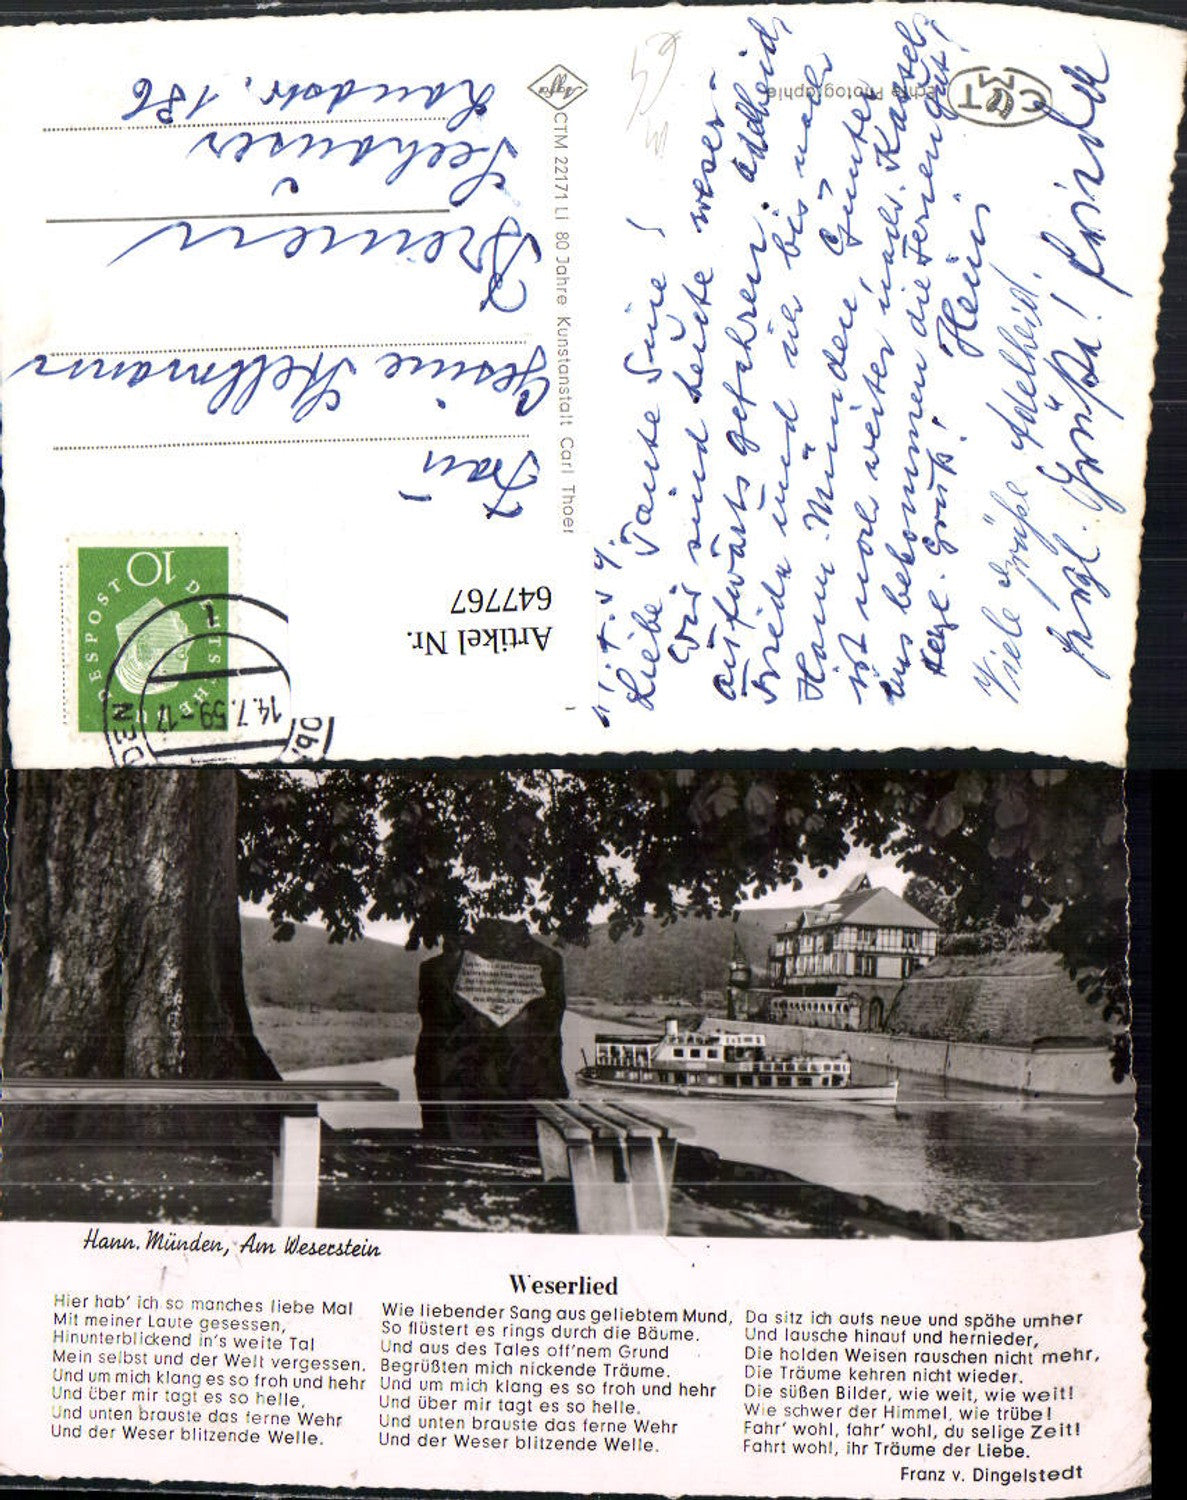 Echte Photographie
CTM
Liebe Tante Sine!
Wir sind heute weser-
aufwärts gefahren. Adelheid,
Frieda und ich bis nach
Hann. Münden, Günter
ist noch weiter nach Kassel.
Uns bekommen die Ferien gut!
Herzl. Gruß! Heini
Viele Grüße Adelheid.
Herzl. Grüße!
Agfa
CTM 22171 Li 80 Jahre Kunstanstalt Carl Thoer
Artikel Nr.
647767
10
DEUTSCHE BUNDESPOST
14.7.59-17
DEN
1
Frau
Gesine Stellmann
Bremen
Seehausen
Landstr. 186
Hann. Münden, Am Weserstein
Weserlied
Hier hab' ich so manches liebe Mal
Mit meiner Laute gesessen,
Hinunterblickend in's weite Tal
Mein selbst und der Welt vergessen.
Und um mich klang es so froh und hehr
Und über mir tagt es so helle,
Und unten brauste das ferne Wehr
Und der Weser blitzende Welle.
Wie liebender Sang aus geliebtem Mund,
So flüstert es rings durch die Bäume.
Und aus des Tales off'nem Grund
Begrüßten mich nickende Träume.
Und um mich klang es so froh und hehr
Und über mir tagt es so helle.
Und unten brauste das ferne Wehr
Und der Weser blitzende Welle.
Da sitz ich aufs neue und spähe umher
Und lausche hinauf und hernieder,
Die holden Weisen rauschen nicht mehr,
Die Träume kehren nicht wieder.
Die süßen Bilder, wie weit, wie weit!
Wie schwer der Himmel, wie trübe!
Fahr' wohl, fahr' wohl, du selige Zeit!
Fahrt wohl, ihr Träume der Liebe.
Franz v. Dingelstedt